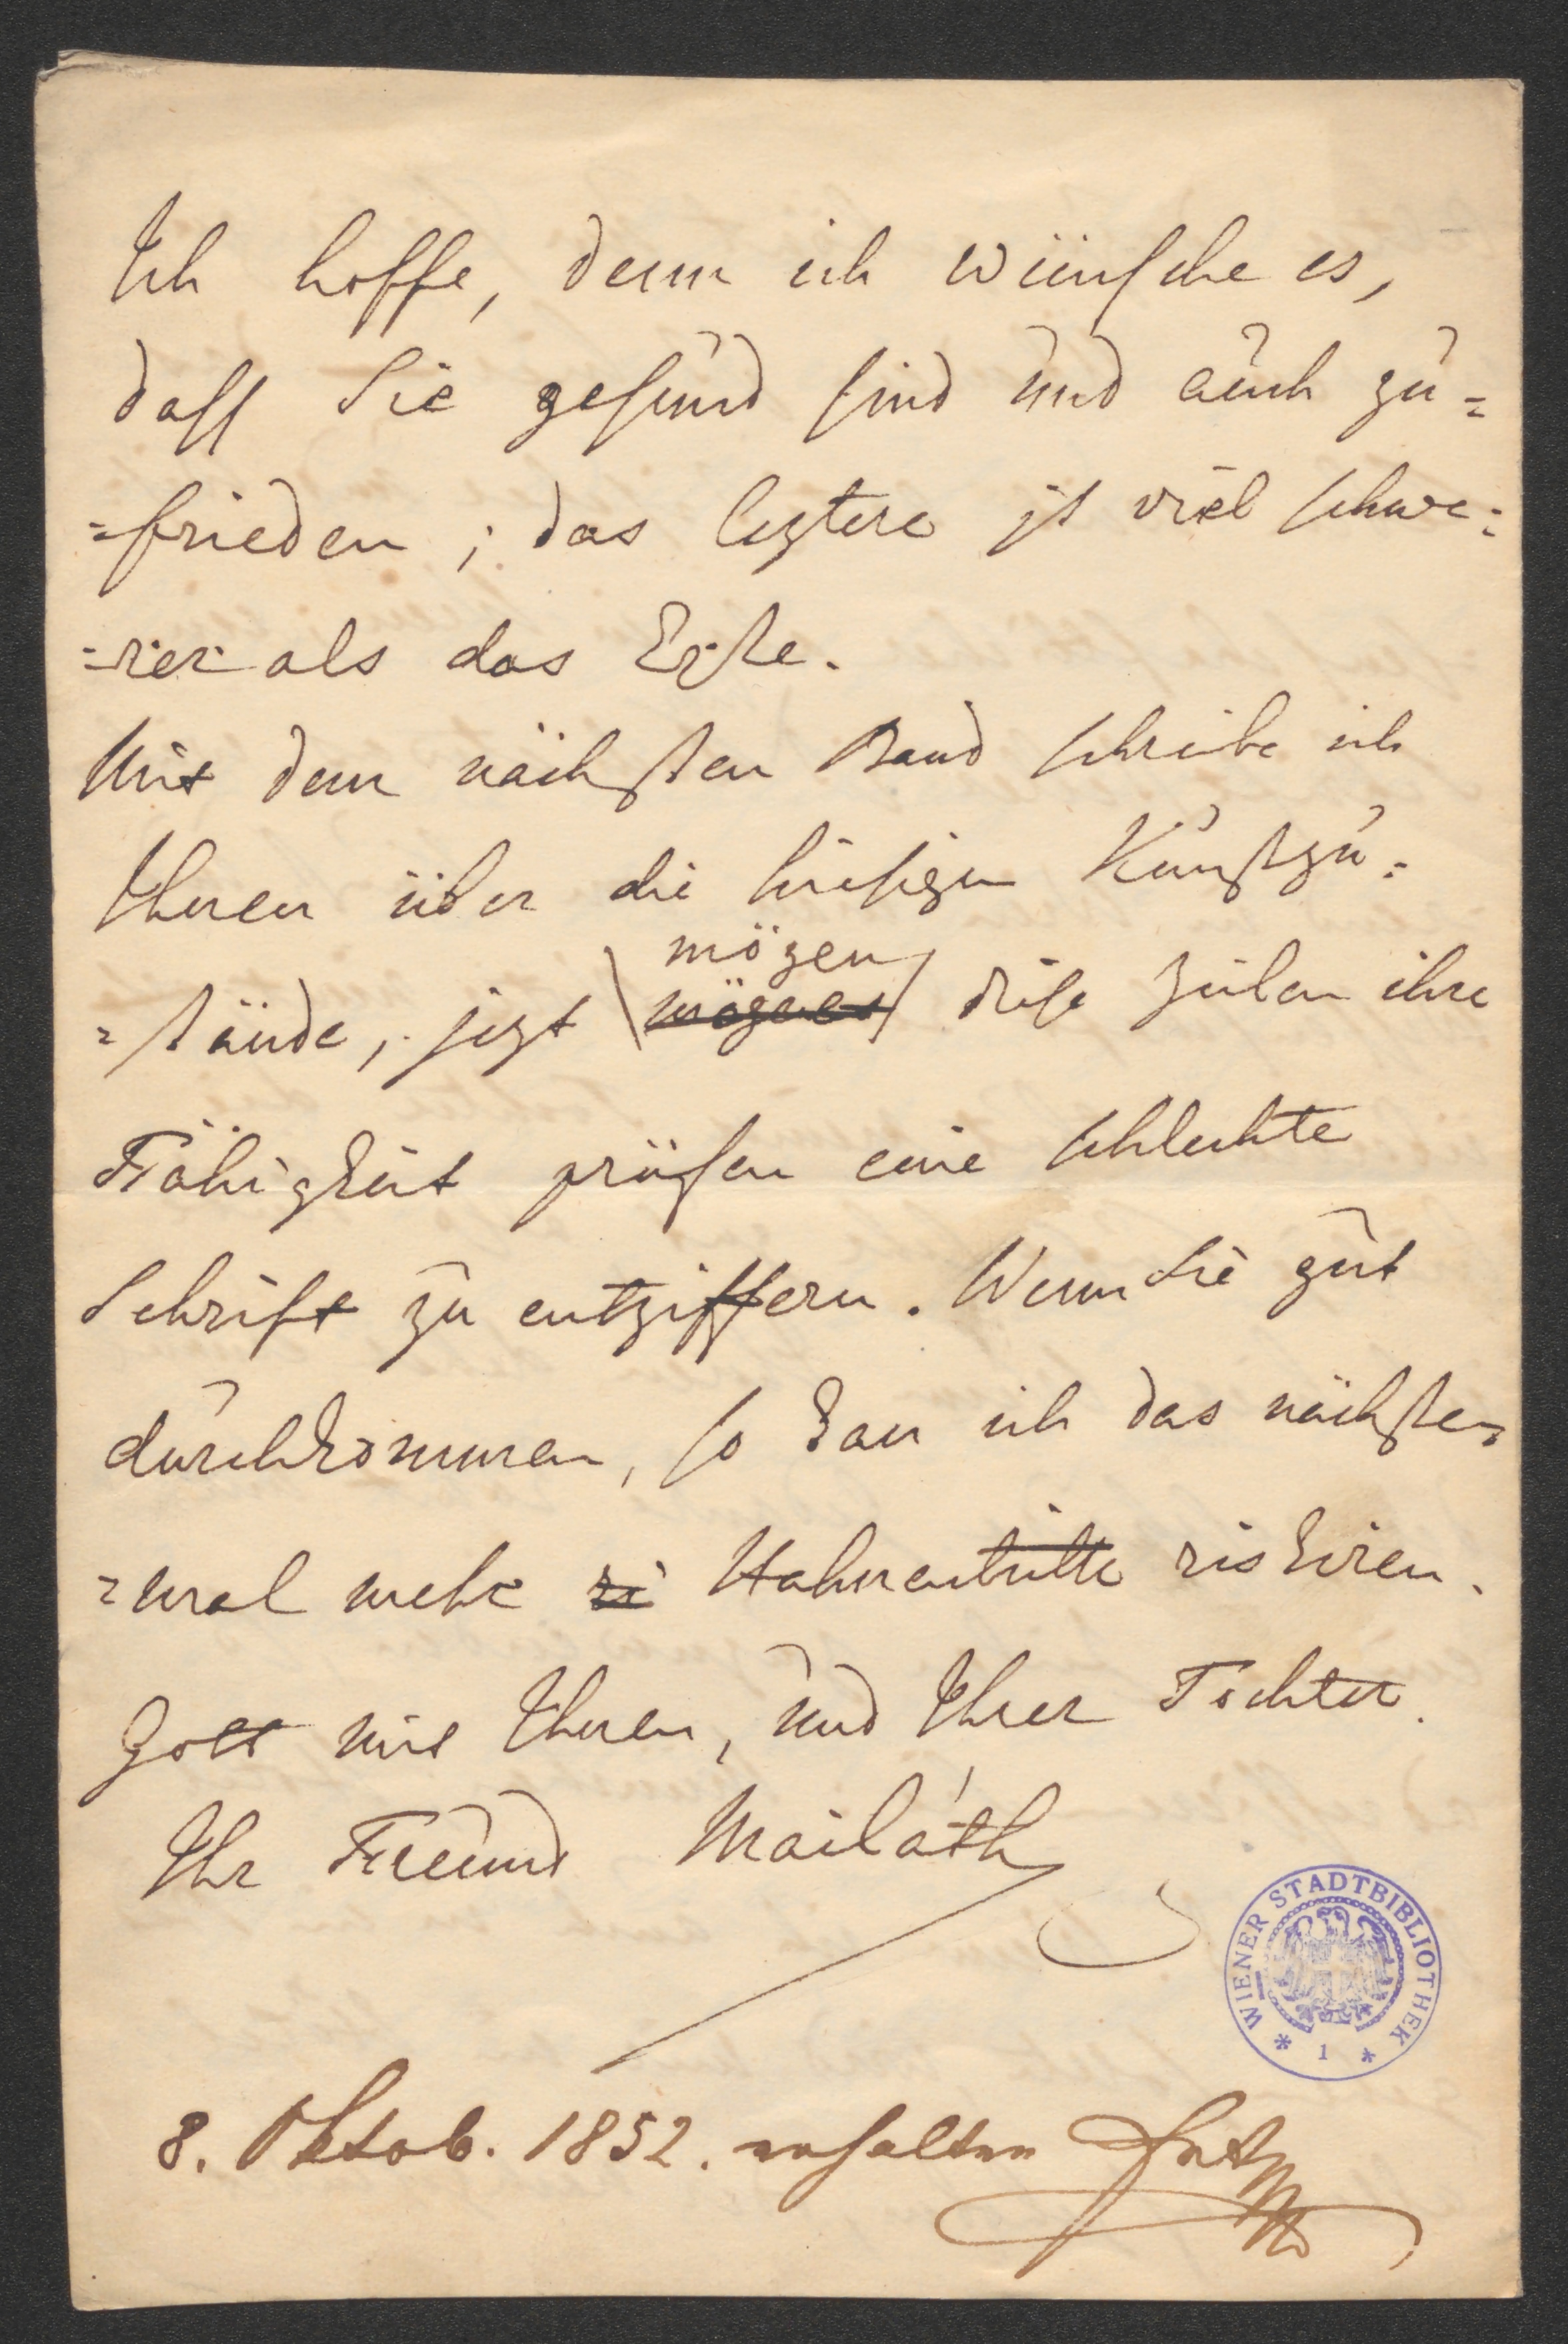 Ich hoffe, denn ich wünsche es,
daß Sie gesund sind und auch zu=
=frieden; das leztere ist viel schwe=
=rer als das Erste.
Mit dem nächsten Band schreibe ich
Ihnen über die hiesigen Kunstzu=
mögen
=stände, jezt möge es diese Zeilen ihre
Fähigkeit prüfen eine schlechte
Schrift zu entziffern. Wenn Sie gut
durchkommen, so kan ich das nächste=
=mal mehr ri Hahnentritte riskiren.
Gott mit Ihnen, und Ihrer Tochter.
Ihr Freund Mailáth
WIENER STADTBIBLIOTHEK
* 1 *
8. Oktob. 1852. erhalten